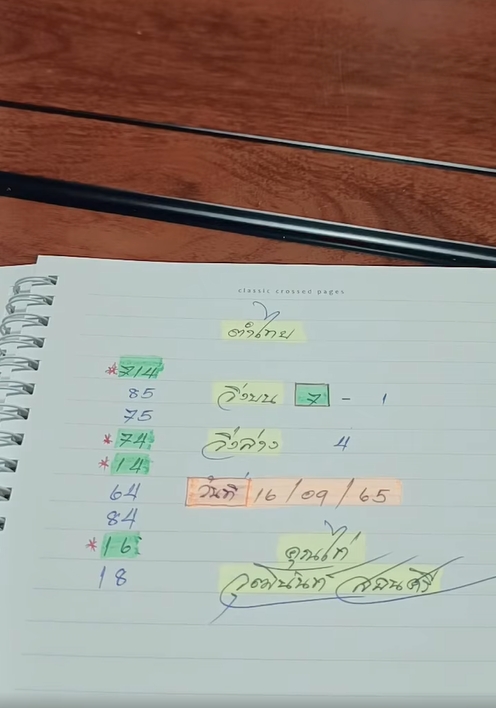 classic crossed pages
คำไทย
*714
85 วิ่งบน 7 - 1
75
*74 วิ่งล่าง 4
*14
64 วันที่ 16/09/65
84
*16
18